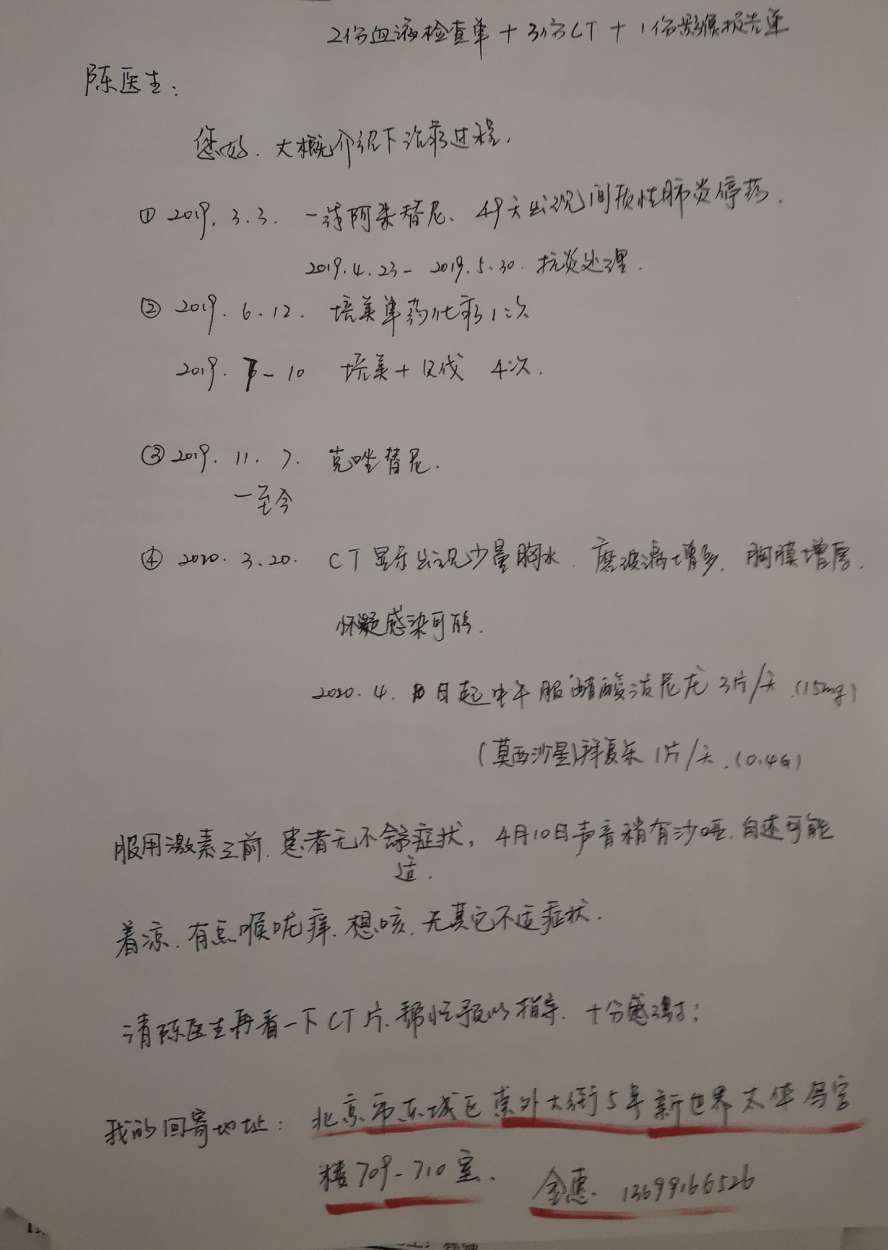 2份血液检查单 + 3份CT + 1份影像报告单
陈医生:
您好. 大概介绍下治疗过程.
① 2019. 3. 3. 一线阿来替尼. 49天出现间质性肺炎停药.
2019.4.23 - 2019.5.30. 抗炎处理.
② 2019. 6. 12. 培美单药化疗1次
2019. 7 - 10 培美 + 贝伐 4次.
③ 2019. 11. 7. 克唑替尼.
-至今
④ 2020. 3. 20. CT显示出现少量胸水. 磨玻璃增多. 胸膜增厚.
怀疑感染可能.
2020. 4. 日起中午服醋酸泼尼龙 3片/天 (15mg)
(莫西沙星)拜复乐 1片/天. (0.4G)
服用激素之前. 患者无不舒症状, 4月10日声音稍有沙哑. 自述可能
适.
着凉. 有点喉咙痒. 想咳. 无其它不适症状.
请陈医生再看一下CT片. 帮忙予以指导. 十分感谢!
我的回寄地址: 北京市东城区崇外大街5号新世界太华公寓
楼709-710室. 金惠. 13699166526